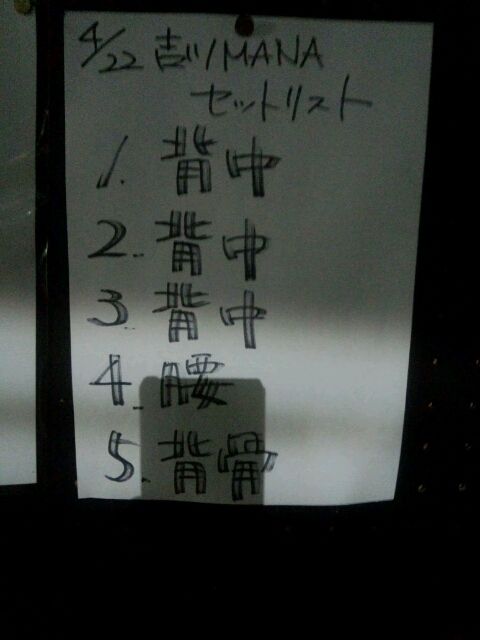 4/22 吉ツMANA
セットリスト
1. 背中
2. 背中
3. 背中
4. 腰
5. 背骨